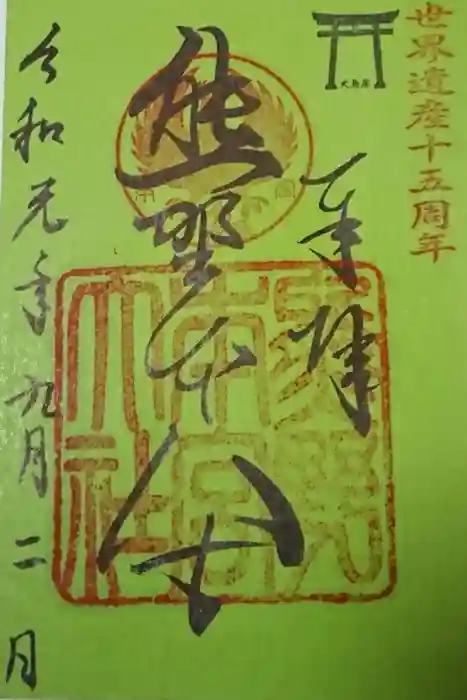 世界遺産十五周年
大鳥居
奉拝
熊野本宮
熊野
本宮
大社
令和元年九月二日